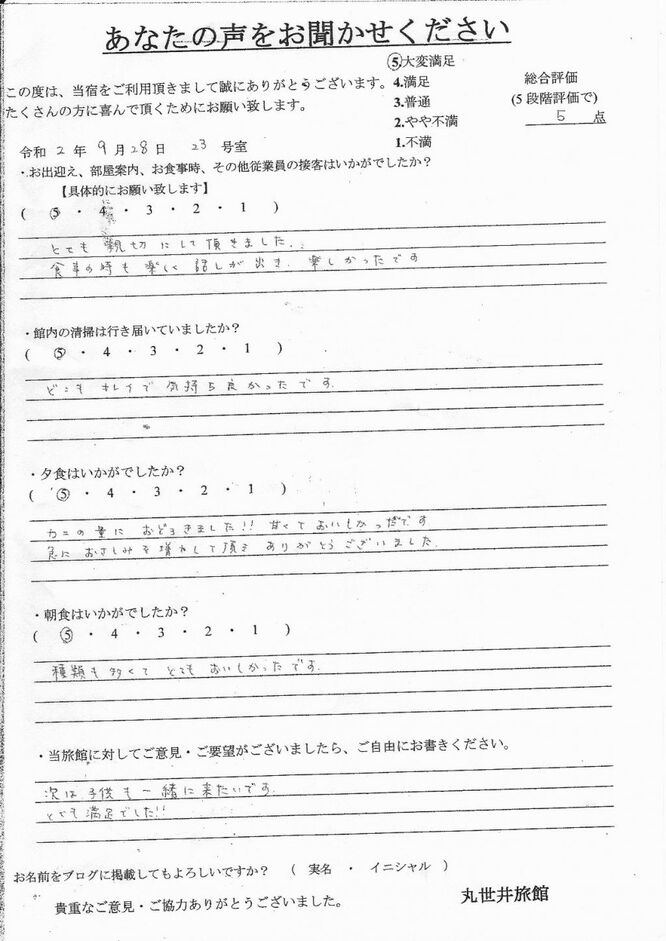 あなたの声をお聞かせください
この度は、当宿をご利用頂きまして誠にありがとうございます。
たくさんの方に喜んで頂くためにお願い致します。
5.大変満足
4.満足
3.普通
2.やや不満
1.不満
総合評価
(5段階評価で)
5 点
令和 2 年 9 月 28 日 23 号室
・お出迎え、部屋案内、お食事時、その他従業員の接客はいかがでしたか？
【具体的にお願い致します】
( 5 ・ 4 ・ 3 ・ 2 ・ 1 )
とても親切にして頂きました。
食事の時も楽しく話しが出き、楽しかったです
・館内の清掃は行き届いていましたか？
( 5 ・ 4 ・ 3 ・ 2 ・ 1 )
どこもキレイで気持ち良かったです。
・夕食はいかがでしたか？
( 5 ・ 4 ・ 3 ・ 2 ・ 1 )
カニの量におどろきました!! 甘くておいしかったです
急におさしみを増やして頂き ありがとうございました。
・朝食はいかがでしたか？
( 5 ・ 4 ・ 3 ・ 2 ・ 1 )
種類も多くて とても おいしかったです。
・当旅館に対してご意見・ご要望がございましたら、ご自由にお書きください。
次は子供も一緒に来たいです。
とても満足でした!!
お名前をブログに掲載してもよろしいですか？ ( 実名 ・ イニシャル )
貴重なご意見・ご協力ありがとうございました。
丸世井旅館